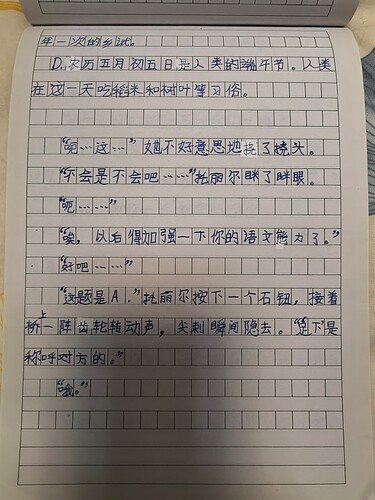 年一次的乡试。
D.农历五月初五日是人类的端午节。人类
在这一天吃稻米和树叶等习俗。
“呃……这……”她不好意思地挠了挠头。
“不会是不会吧……”托丽尔眯了眯眼。
“呃……”
“唉，以后得加强一下你的语文能力了。”
“好吧……”
“这题是A.”托丽尔按下一个石钮，接着
桥上一阵齿轮转动声，尖刺瞬间隐去。“足下”是
称呼对方的。”
“哦。”